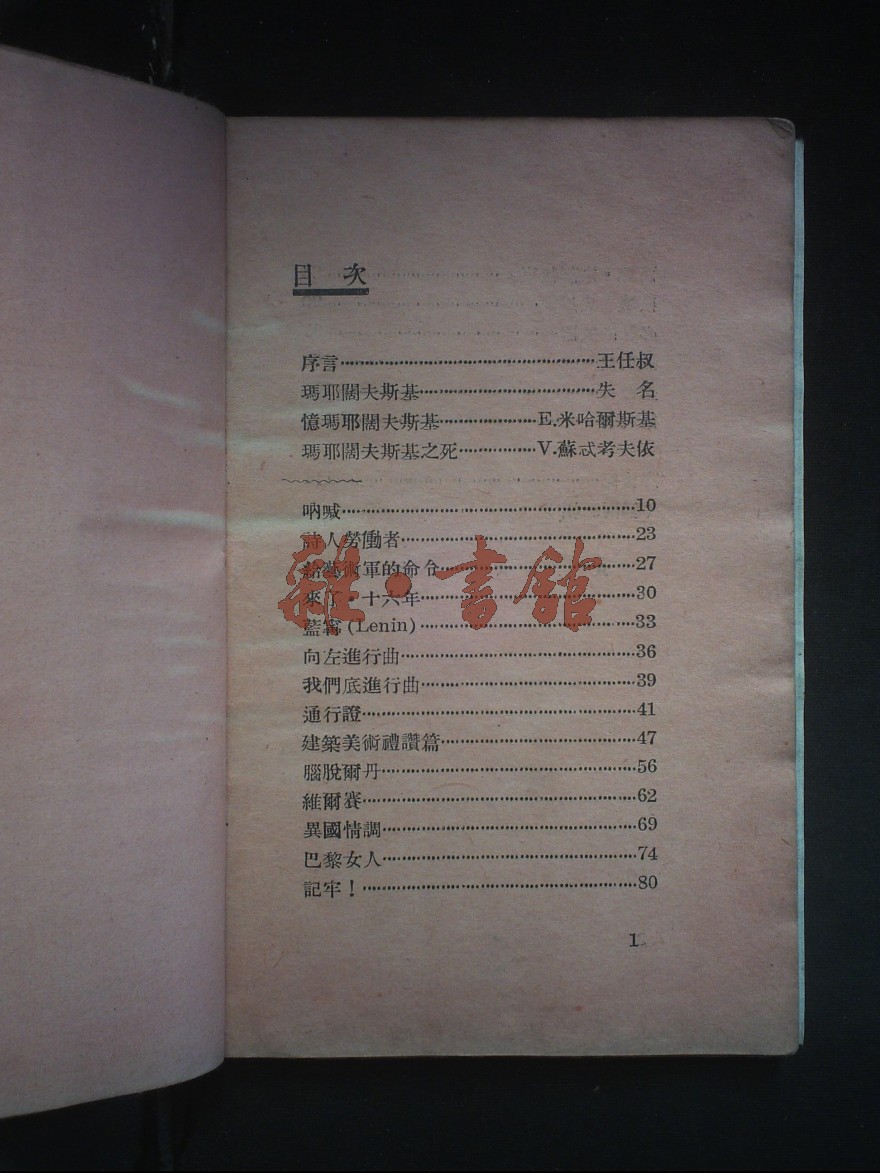 目 次
序言…………王任叔
瑪耶闊夫斯基…………失 名
憶瑪耶闊夫斯基…………E.米哈爾斯基
瑪耶闊夫斯基之死…………V.蘇忒考夫依
吶喊…………10
詩人勞働者…………23
給藝術軍的命令…………27
來了·十六年…………30
藍寗(Lenin)…………33
向左進行曲…………36
我們底進行曲…………39
通行證…………41
建築美術禮讚篇…………47
腦脫爾丹…………56
維爾賽…………62
異國情調…………69
巴黎女人…………74
記牢！…………80
1
雜·書館